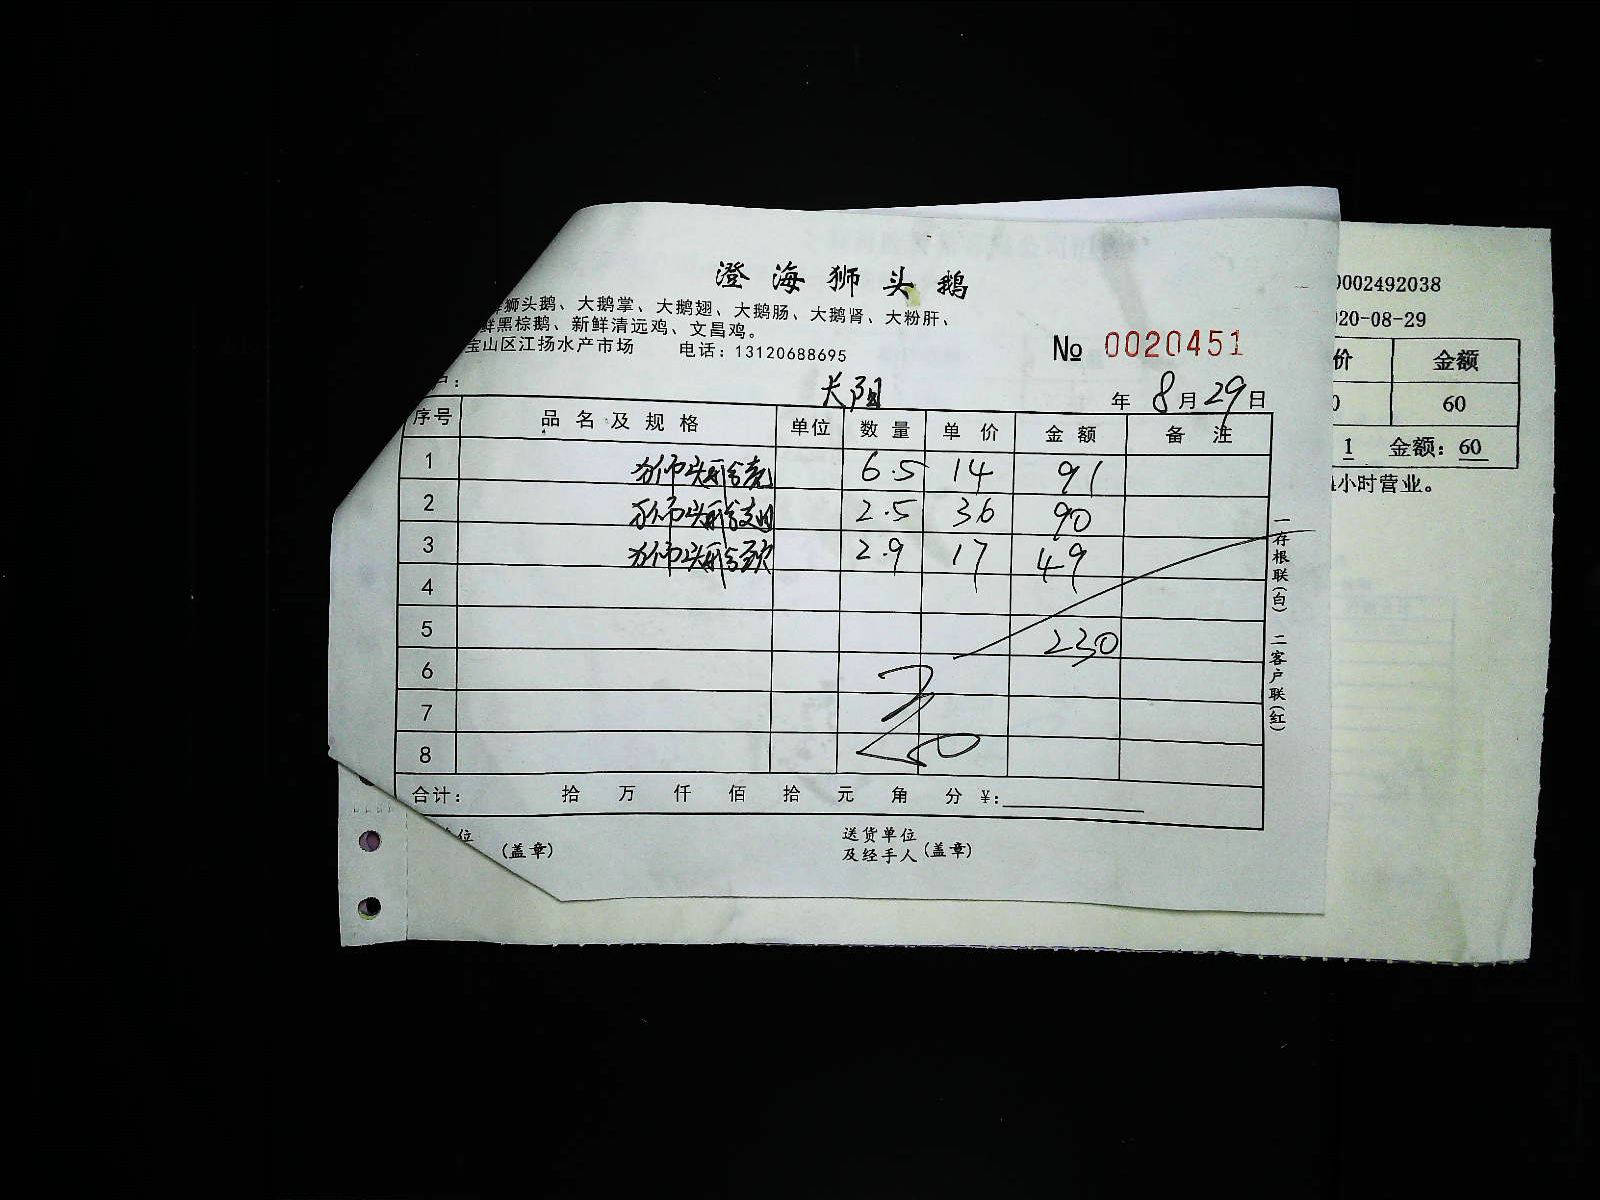 澄海狮头鹅
狮头鹅、大鹅掌、大鹅翅、大鹅肠、大鹅肾、大粉肝、
鲜黑棕鹅、新鲜清远鸡、文昌鸡。
宝山区江扬水产市场 电话：13120688695
№ 0020451
户： 长阳 年 8月29日
序号 品名及规格 单位 数量 单价 金额 备注
1 狮头鹅壳 6.5 14 91
2 狮头鹅翅 2.5 36 90
3 狮头鹅颈 2.9 17 49
4
5 230
6
7
8
合计： 拾 万 仟 佰 拾 元 角 分 ¥:
位 (盖章) 送货单位
及经手人 (盖章)
一存根联(白) 二客户联(红)
0002492038
20-08-29
价 金额
0 60
1 金额：60
小时营业。